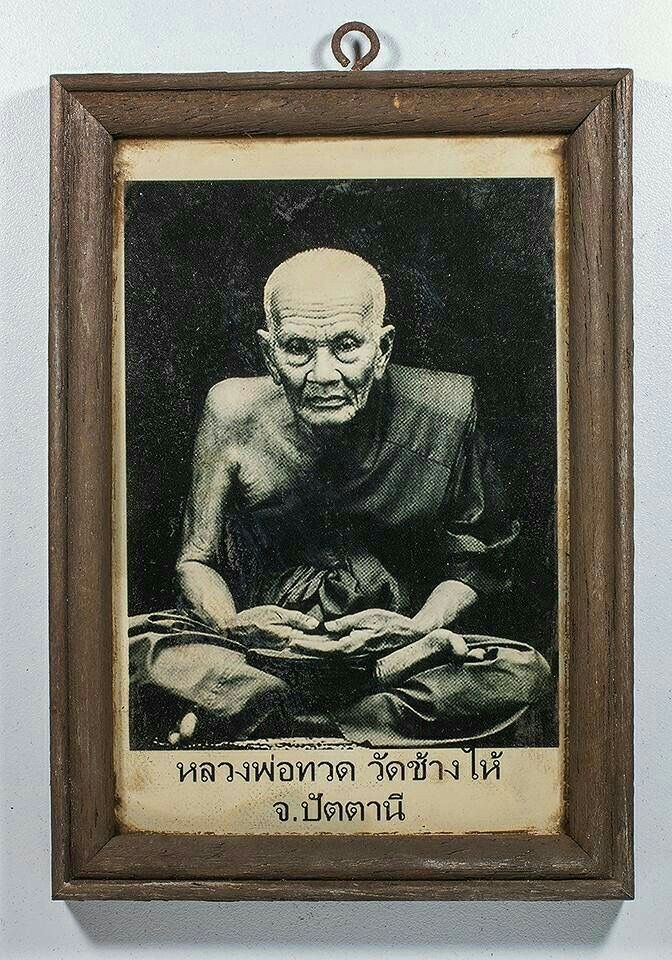 หลวงพ่อทวด วัดช้างให้
จ.ปัตตานี